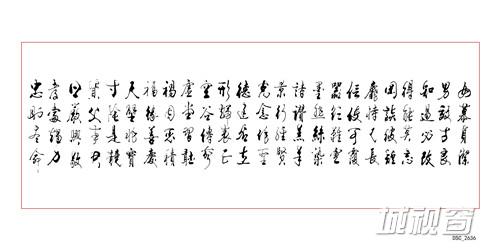 女慕貞潔
男效才良
知過必改
得能莫忘
罔談彼短
靡恃己長
信使可覆
器欲難量
墨悲絲染
詩讚羔羊
景行維賢
克念作聖
德建名立
形端表正
空谷傳聲
虛堂習聽
禍因惡積
福緣善慶
尺璧非寶
寸陰是競
資父事君
曰嚴與敬
孝當竭力
忠則盡命
城视窗
DSC_2636